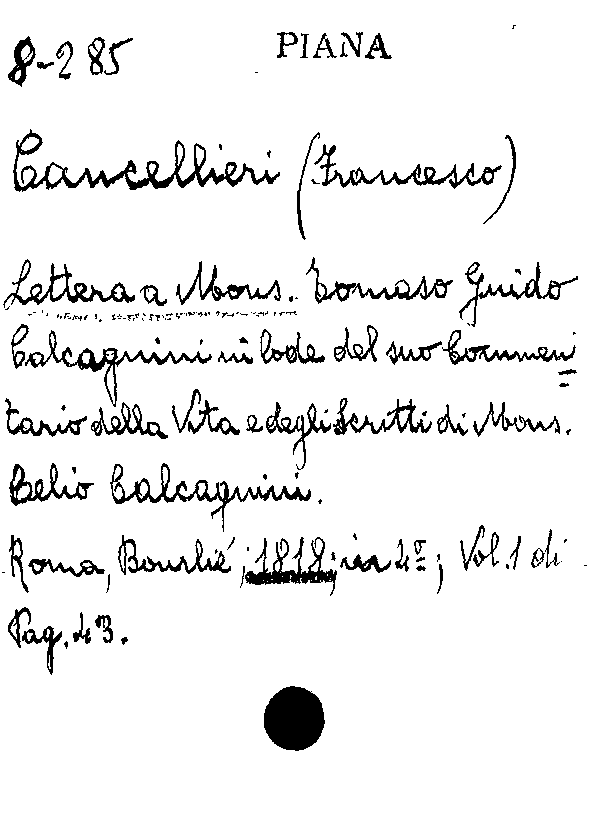 8-285
PIANA
Cancellieri (Francesco)
Lettera a Mons. Tomaso Guido
Calcagnini in lode del suo Commen=
tario della Vita e degli Scritti di Mons.
Celio Calcagnini.
Roma, Bourlié; 1818; in 4º; Vol. 1 di
Pag. 43.